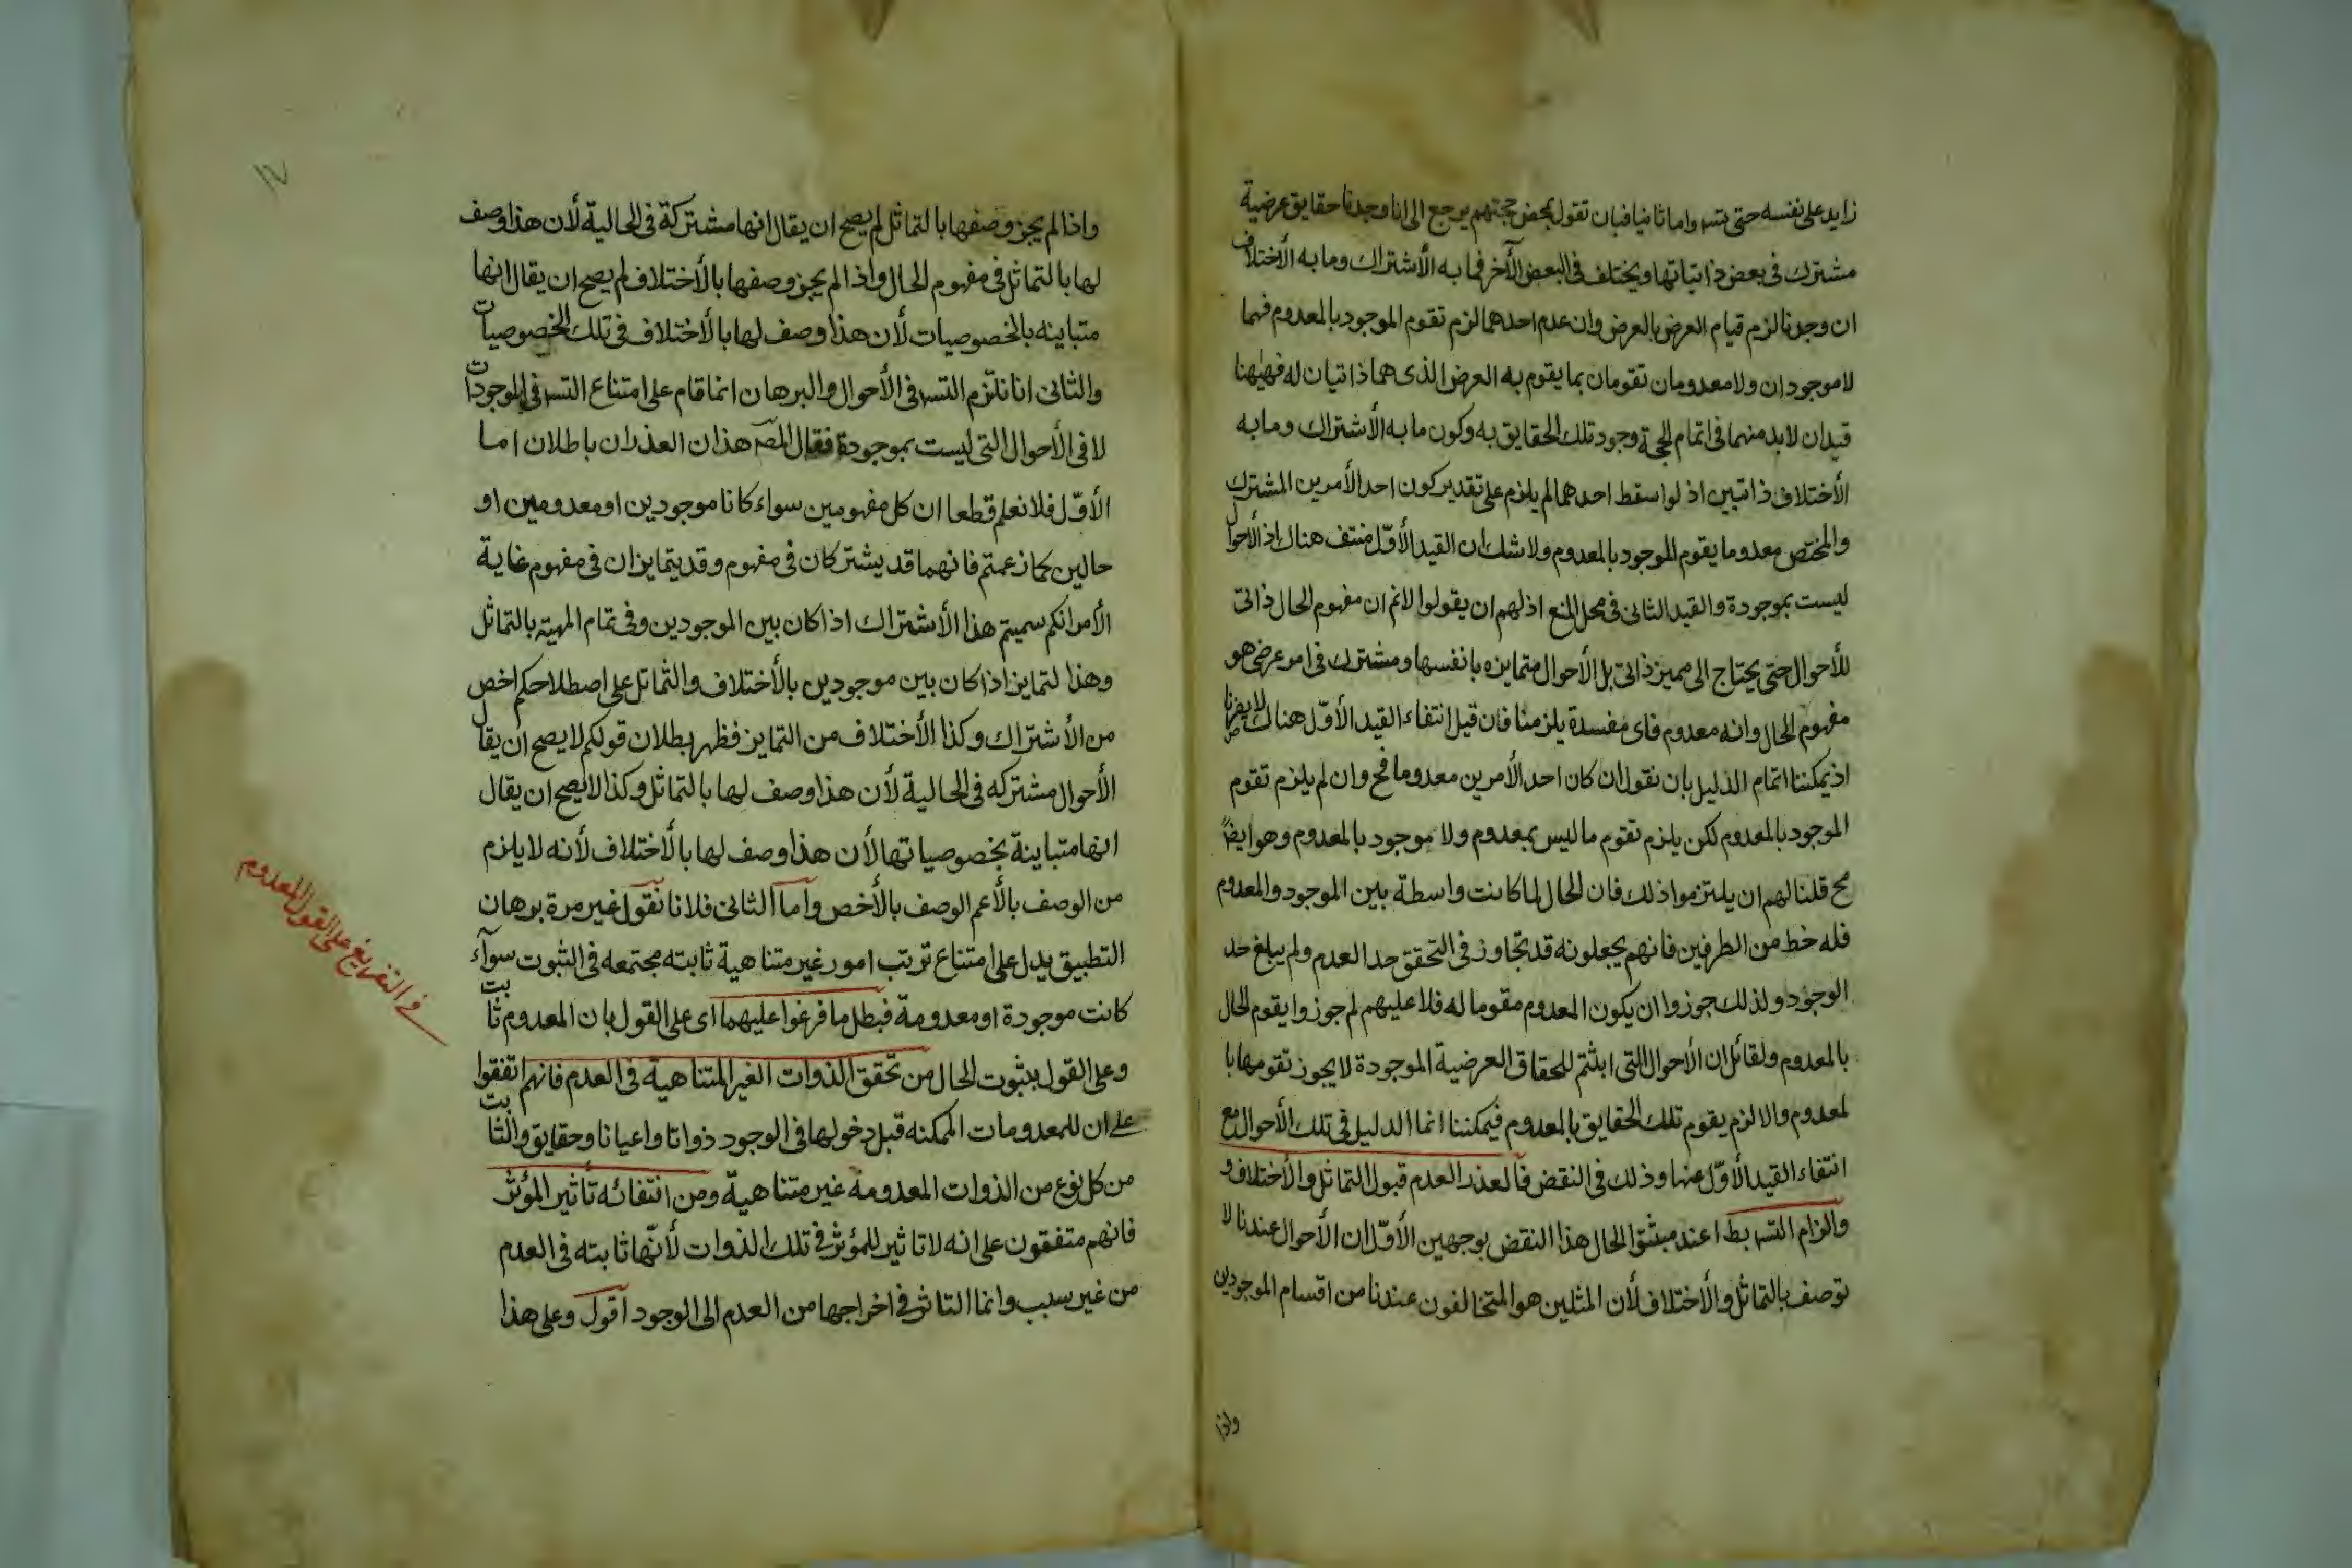 زايد على نفسه حتى يتسه واما ثانيا فبان تقول محض حجتهم يرجع الى انا وجدنا حقايق عرضية
مشترك فى بعض ذاتياتها ويختلف فى البعض الآخر فما به الأشتراك وما به الأختلاف
ان وجدنا لزم قيام العرض بالعرض وان عدم احدهما لزم تقوم الموجود بالمعدوم فهما
لا موجودان ولا معدومان تقومان بما يقوم به العرض الذى هما ذاتيان له فهيهنا
قيدان لابد منهما فى اتمام الحجة وجود تلك الحقايق به وكون ما به الأشتراك وما به
الأختلاف ذاتيين اذ لو اسقط احدهما لم يلزم على تقدير كون احد الأمرين المشترك
والمختص معدوما يقوم الموجود بالمعدوم ولا شك ان القيد الأوّل منتف هناك اذ الأحوال
ليست بموجودة والقيد الثانى فى محل المنع اذ لهم ان يقولوا لانم ان مفهوم الحال ذاتى
للأحوال حتى يحتاج الى مميز ذاتى بل الأحوال متمايزه بانفسها ومشترك فى امر عرضى هو
مفهوم الحال وانه معدوم فاى مفسدة يلزمنا فان قيل انتفاء القيد الأوّل هناك لا يضرنا
اذ يمكننا اتمام الدليل بان نقول ان كان احد الأمرين معدوما فح وان لم يلزم تقوم
الموجود بالمعدوم لكن يلزم تقوم ما ليس بمعدوم ولا موجود بالمعدوم وهو ايضاً
مح قلنا لهم ان يلتزموا ذلك فان الحال لما كانت واسطة بين الموجود والمعدوم
فله خط من الطرفين فانهم يجعلونه قد تجاوز فى التحقق حد العدم ولم يبلغ حد
الوجود ولذلك جوزوا ان يكون المعدوم مقوما له فلا عليهم لم جوزوا يقوم الحال
بالمعدوم ولقائل ان الأحوال التى ابثتم للحقاق العرضية الموجودة لا يجوز تقومها با
لمعدوم والا لزم يقوم تلك الحقايق بالمعدوم فيمكننا انما الدليل فى تلك الأحوال مع
انتفاء القيد الأوّل عنها وذلك فى النقض فالعذر العدم قبول التماثل والأختلاف و
والزام التسه بط اعند مبثتوا الحال هذا النقض بوجهين الأوّل ان الأحوال عندنا لا
توصف بالتماثل والأختلاف لأن المثلين هو المتخالفون عندنا من اقسام الموجودين
واذا
١٧
واذا لم يجز وصفها بالتماثل لم يصح ان يقال انها مشتركة فى الحالية لأن هذا وصف
لها بالتماثل فى مفهوم الحال واذا لم يجز وصفها بالأختلاف لم يصح ان يقال انها
متباينه بالخصوصيات لأن هذا وصف لها بالأختلاف فى تلك الخصوصيات
والثانى انا نلتزم التسه فى الأحوال والبرهان انما قام على امتناع التسه فى الموجودات
لا فى الأحوال التى ليست بموجودة فقال المصـ هذان العذران باطلان اما
الأوّل فلا نعلم قطعا ان كل مفهومين سواء كانا موجودين او معدومين او
حالين كما زعمتم فانهما قد يشتركان فى مفهوم وقد يتمايزان فى مفهوم غاية
الأمر انكم سميتم هذا الأشتراك اذا كان بين الموجودين وفى تمام المهية بالتماثل
وهذا لتمايز اذا كان بين موجودين بالأختلاف والتماثل على اصطلاحكم اخص
من الأشتراك وكذا الأختلاف من التمايز فظهر بطلان قولكم لا يصح ان يقال
الأحوال مشتركه فى الحالية لأن هذا وصف لها بالتماثل وكذا لا يصح ان يقال
انها متباينة بخصوصياتها لأن هذا وصف لها بالأختلاف لأنه لا يلزم
من الوصف بالأعم الوصف بالأخص وأما الثانى فلانا نقول غير مرة برهان
التطبيق يدل على امتناع ترتب امور غير متناهية ثابته مجتمعه فى الثبوت سوآء
كانت موجودة او معدومة فبطل ما فرغوا عليهما اى على القول بان المعدوم ثابت
وعلى القول بثبوت الحال من تحقق الذوات الغير المتناهية فى العدم فانهم اتفقوا
على ان للمعدومات الممكنه قبل دخولها فى الوجود ذواتا واعيانا وحقايق والثابت
من كل نوع من الذوات المعدومة غير متناهية ومن انتفائه تأثير المؤثر
فانهم متفقون على انه لا تاثير للمؤثر فى تلك الذوات لأنّها ثابته فى العدم
من غير سبب وانما التاثر فى اخراجها من العدم الى الوجود اقول وعلى هذا
فى التفريع على القول المعدوم